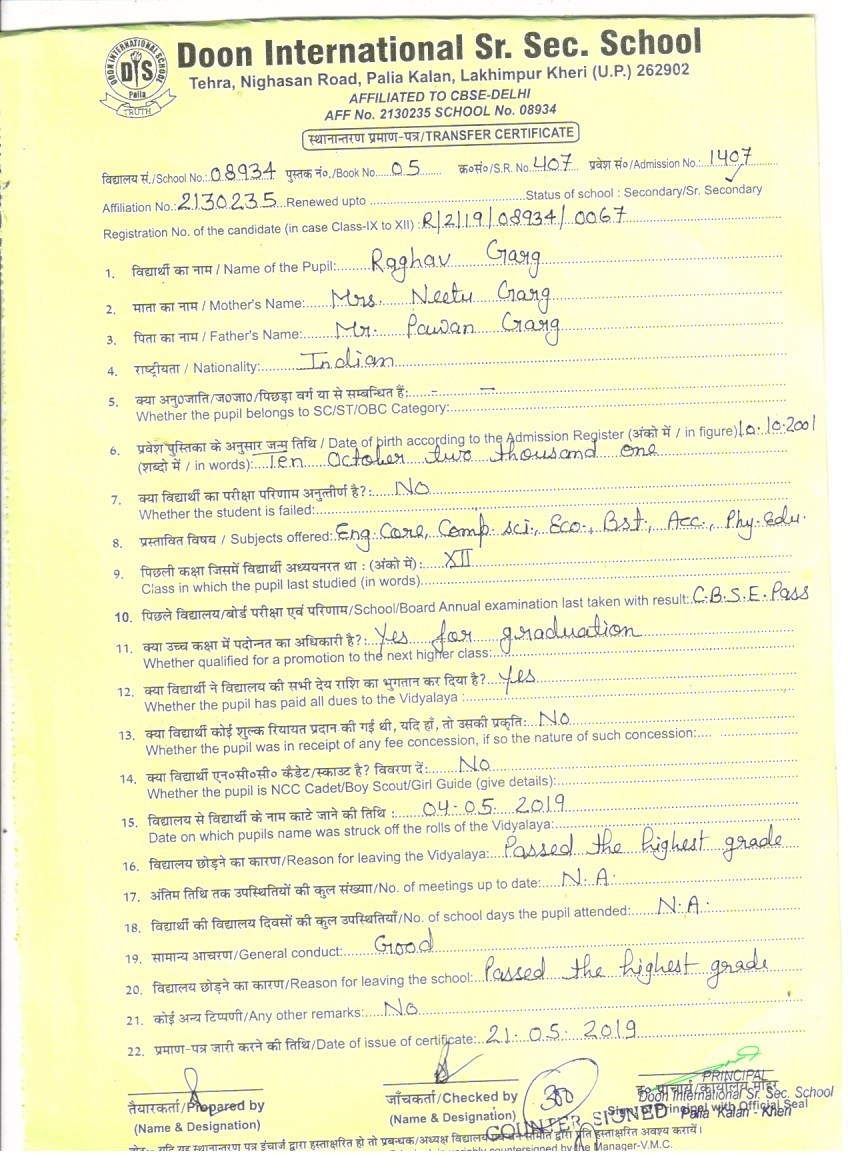 DOON INTERNATIONAL SCHOOL
DIS
Palia
TRUTH
Doon International Sr. Sec. School
Tehra, Nighasan Road, Palia Kalan, Lakhimpur Kheri (U.P.) 262902
AFFILIATED TO CBSE-DELHI
AFF No. 2130235 SCHOOL No. 08934
स्थानान्तरण प्रमाण-पत्र/TRANSFER CERTIFICATE
विद्यालय सं./School No.: 08934 पुस्तक नं./Book No. 05 क्र०सं०/S.R. No. 407 प्रवेश सं०/Admission No.: 1407
Affiliation No.: 2130235 Renewed upto Status of school : Secondary/Sr. Secondary
Registration No. of the candidate (in case Class-IX to XII) : R/2/19/08934/0067
1. विद्यार्थी का नाम / Name of the Pupil: Raghav Garg
2. माता का नाम / Mother's Name: Mrs. Neetu Garg
3. पिता का नाम / Father's Name: Mr. Pawan Garg
4. राष्ट्रीयता / Nationality: Indian
5. क्या अनु०जाति/ज०जा०/पिछड़ा वर्ग या से सम्बन्धित हैं: - -
Whether the pupil belongs to SC/ST/OBC Category:
6. प्रवेश पुस्तिका के अनुसार जन्म तिथि / Date of birth according to the Admission Register (अंको में / in figure) 10.10.2001
(शब्दो में / in words): Ten October two thousand one
7. क्या विद्यार्थी का परीक्षा परिणाम अनुत्तीर्ण है?: No
Whether the student is failed:
8. प्रस्तावित विषय / Subjects offered: Eng. Core, Comp. sci., Eco., Bst., Acc., Phy. edu.
9. पिछली कक्षा जिसमें विद्यार्थी अध्ययनरत था : (अंको में): XII
Class in which the pupil last studied (in words)
10. पिछले विद्यालय/बोर्ड परीक्षा एवं परिणाम/School/Board Annual examination last taken with result: C.B.S.E. Pass
11. क्या उच्च कक्षा में पदोन्नत का अधिकारी है?: Yes for graduation
Whether qualified for a promotion to the next higher class:
12. क्या विद्यार्थी ने विद्यालय की सभी देय राशि का भुगतान कर दिया है? Yes
Whether the pupil has paid all dues to the Vidyalaya :
13. क्या विद्यार्थी कोई शुल्क रियायत प्रदान की गई थी, यदि हाँ, तो उसकी प्रकृति: No
Whether the pupil was in receipt of any fee concession, if so the nature of such concession:
14. क्या विद्यार्थी एन०सी०सी० कैडेट/स्काउट है? विवरण दें: No
Whether the pupil is NCC Cadet/Boy Scout/Girl Guide (give details):
15. विद्यालय से विद्यार्थी के नाम काटे जाने की तिथि : 04-05. 2019
Date on which pupils name was struck off the rolls of the Vidyalaya:
16. विद्यालय छोड़ने का कारण/Reason for leaving the Vidyalaya: Passed the highest grade
17. अंतिम तिथि तक उपस्थितियों की कुल संख्या/No. of meetings up to date: N.A.
18. विद्यार्थी की विद्यालय दिवसों की कुल उपस्थितियाँ/No. of school days the pupil attended: N.A.
19. सामान्य आचरण/General conduct: Good
20. विद्यालय छोड़ने का कारण/Reason for leaving the school: Passed the highest grade
21. कोई अन्य टिप्पणी/Any other remarks: No
22. प्रमाण-पत्र जारी करने की तिथि/Date of issue of certificate: 21. 05. 2019
तैयारकर्ता/Prepared by
(Name & Designation)
जाँचकर्ता/Checked by
(Name & Designation)
300
COUNTER SIGNED
PRINCIPAL
ह० प्राचार्य/कार्यालय मोहर
Doon International Sr. Sec. School
Palia Kalan - Kheri
Principal with Official Seal
नोट:- यदि यह स्थानान्तरण पत्र इंचार्ज द्वारा हस्ताक्षरित हो तो प्रबन्धक/अध्यक्ष विद्यालय द्वारा प्रति हस्ताक्षरित अवश्य करायें।
countersigned by the Manager-V.M.C.